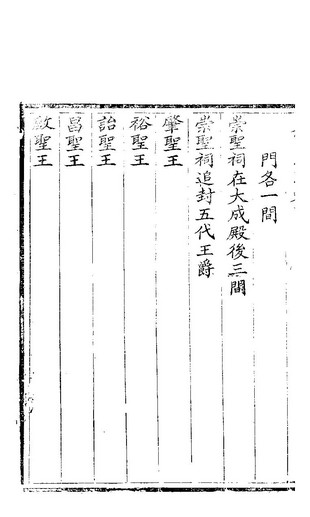 門各一間
崇聖祠在大成殿後三間
崇聖祠追封五代王爵
肇聖王
裕聖王
詒聖王
昌聖王
啟聖王